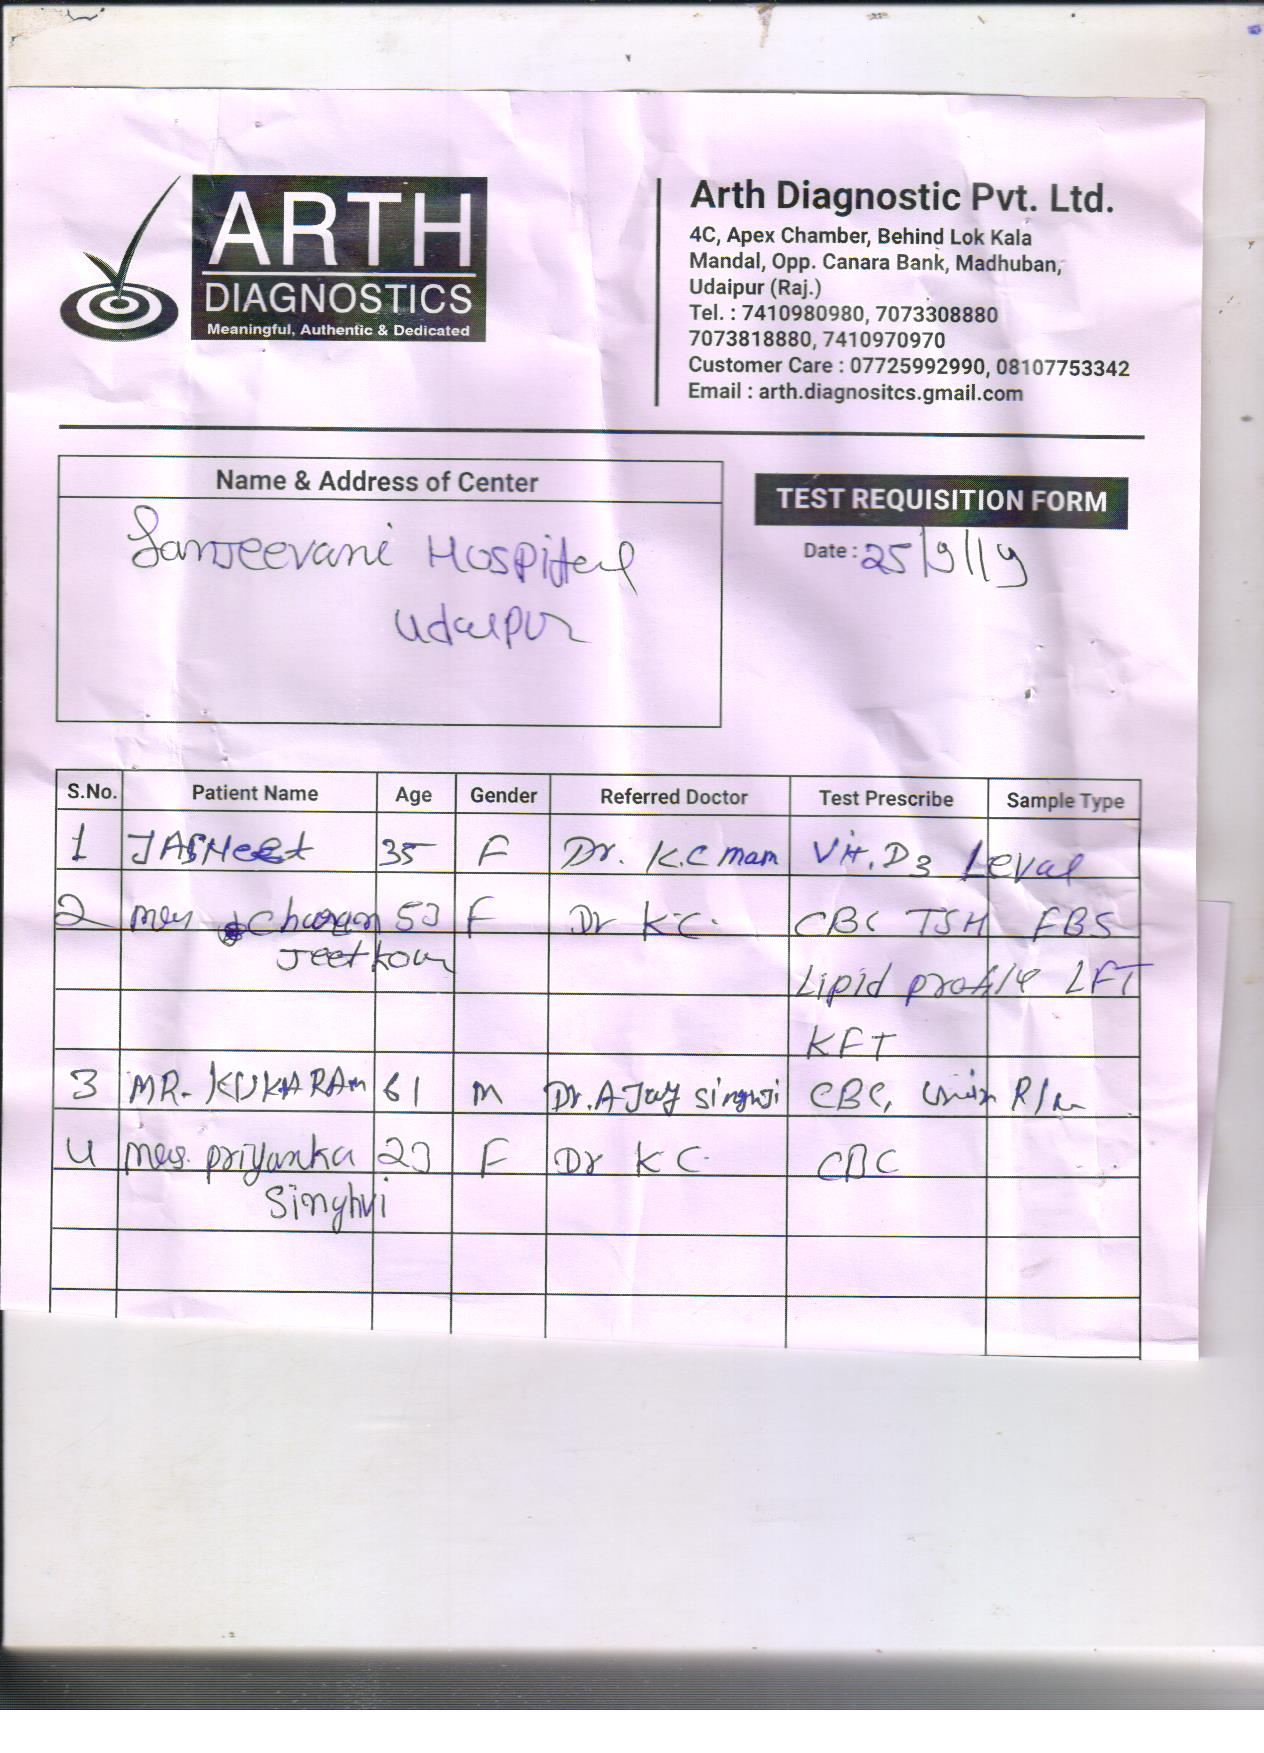 ARTH
DIAGNOSTICS
Meaningful, Authentic & Dedicated
Arth Diagnostic Pvt. Ltd.
4C, Apex Chamber, Behind Lok Kala
Mandal, Opp. Canara Bank, Madhuban,
Udaipur (Raj.)
Tel. : 7410980980, 7073308880
7073818880, 7410970970
Customer Care : 07725992990, 08107753342
Email : arth.diagnositcs.gmail.com
Name & Address of Center
Sanjeevani Hospital
Udaipur
TEST REQUISITION FORM
Date : 25/9/19
S.No. Patient Name Age Gender Referred Doctor Test Prescribe Sample Type
1 JASNeet 35 F Dr. K.C mam Vit. D3 Leval
2 Mrs Charan 53 F Dr KC. CBC TSH FBS
Jeet kour
Lipid profile LFT
KFT
3 MR. KUKARAM 61 M Dr. AJay Singhvi CBC, R/m
4 Mrs. priyanka 23 F Dr KC. CBC
Singhvi